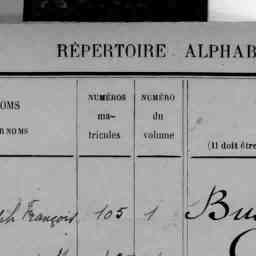 RÉPERTOIRE ALPHAB
OMS
RNOMS
NUMÉROS
ma-
tricules
NUMÉRO
du
volume
(Il doit être
ph François 105 1 Bu